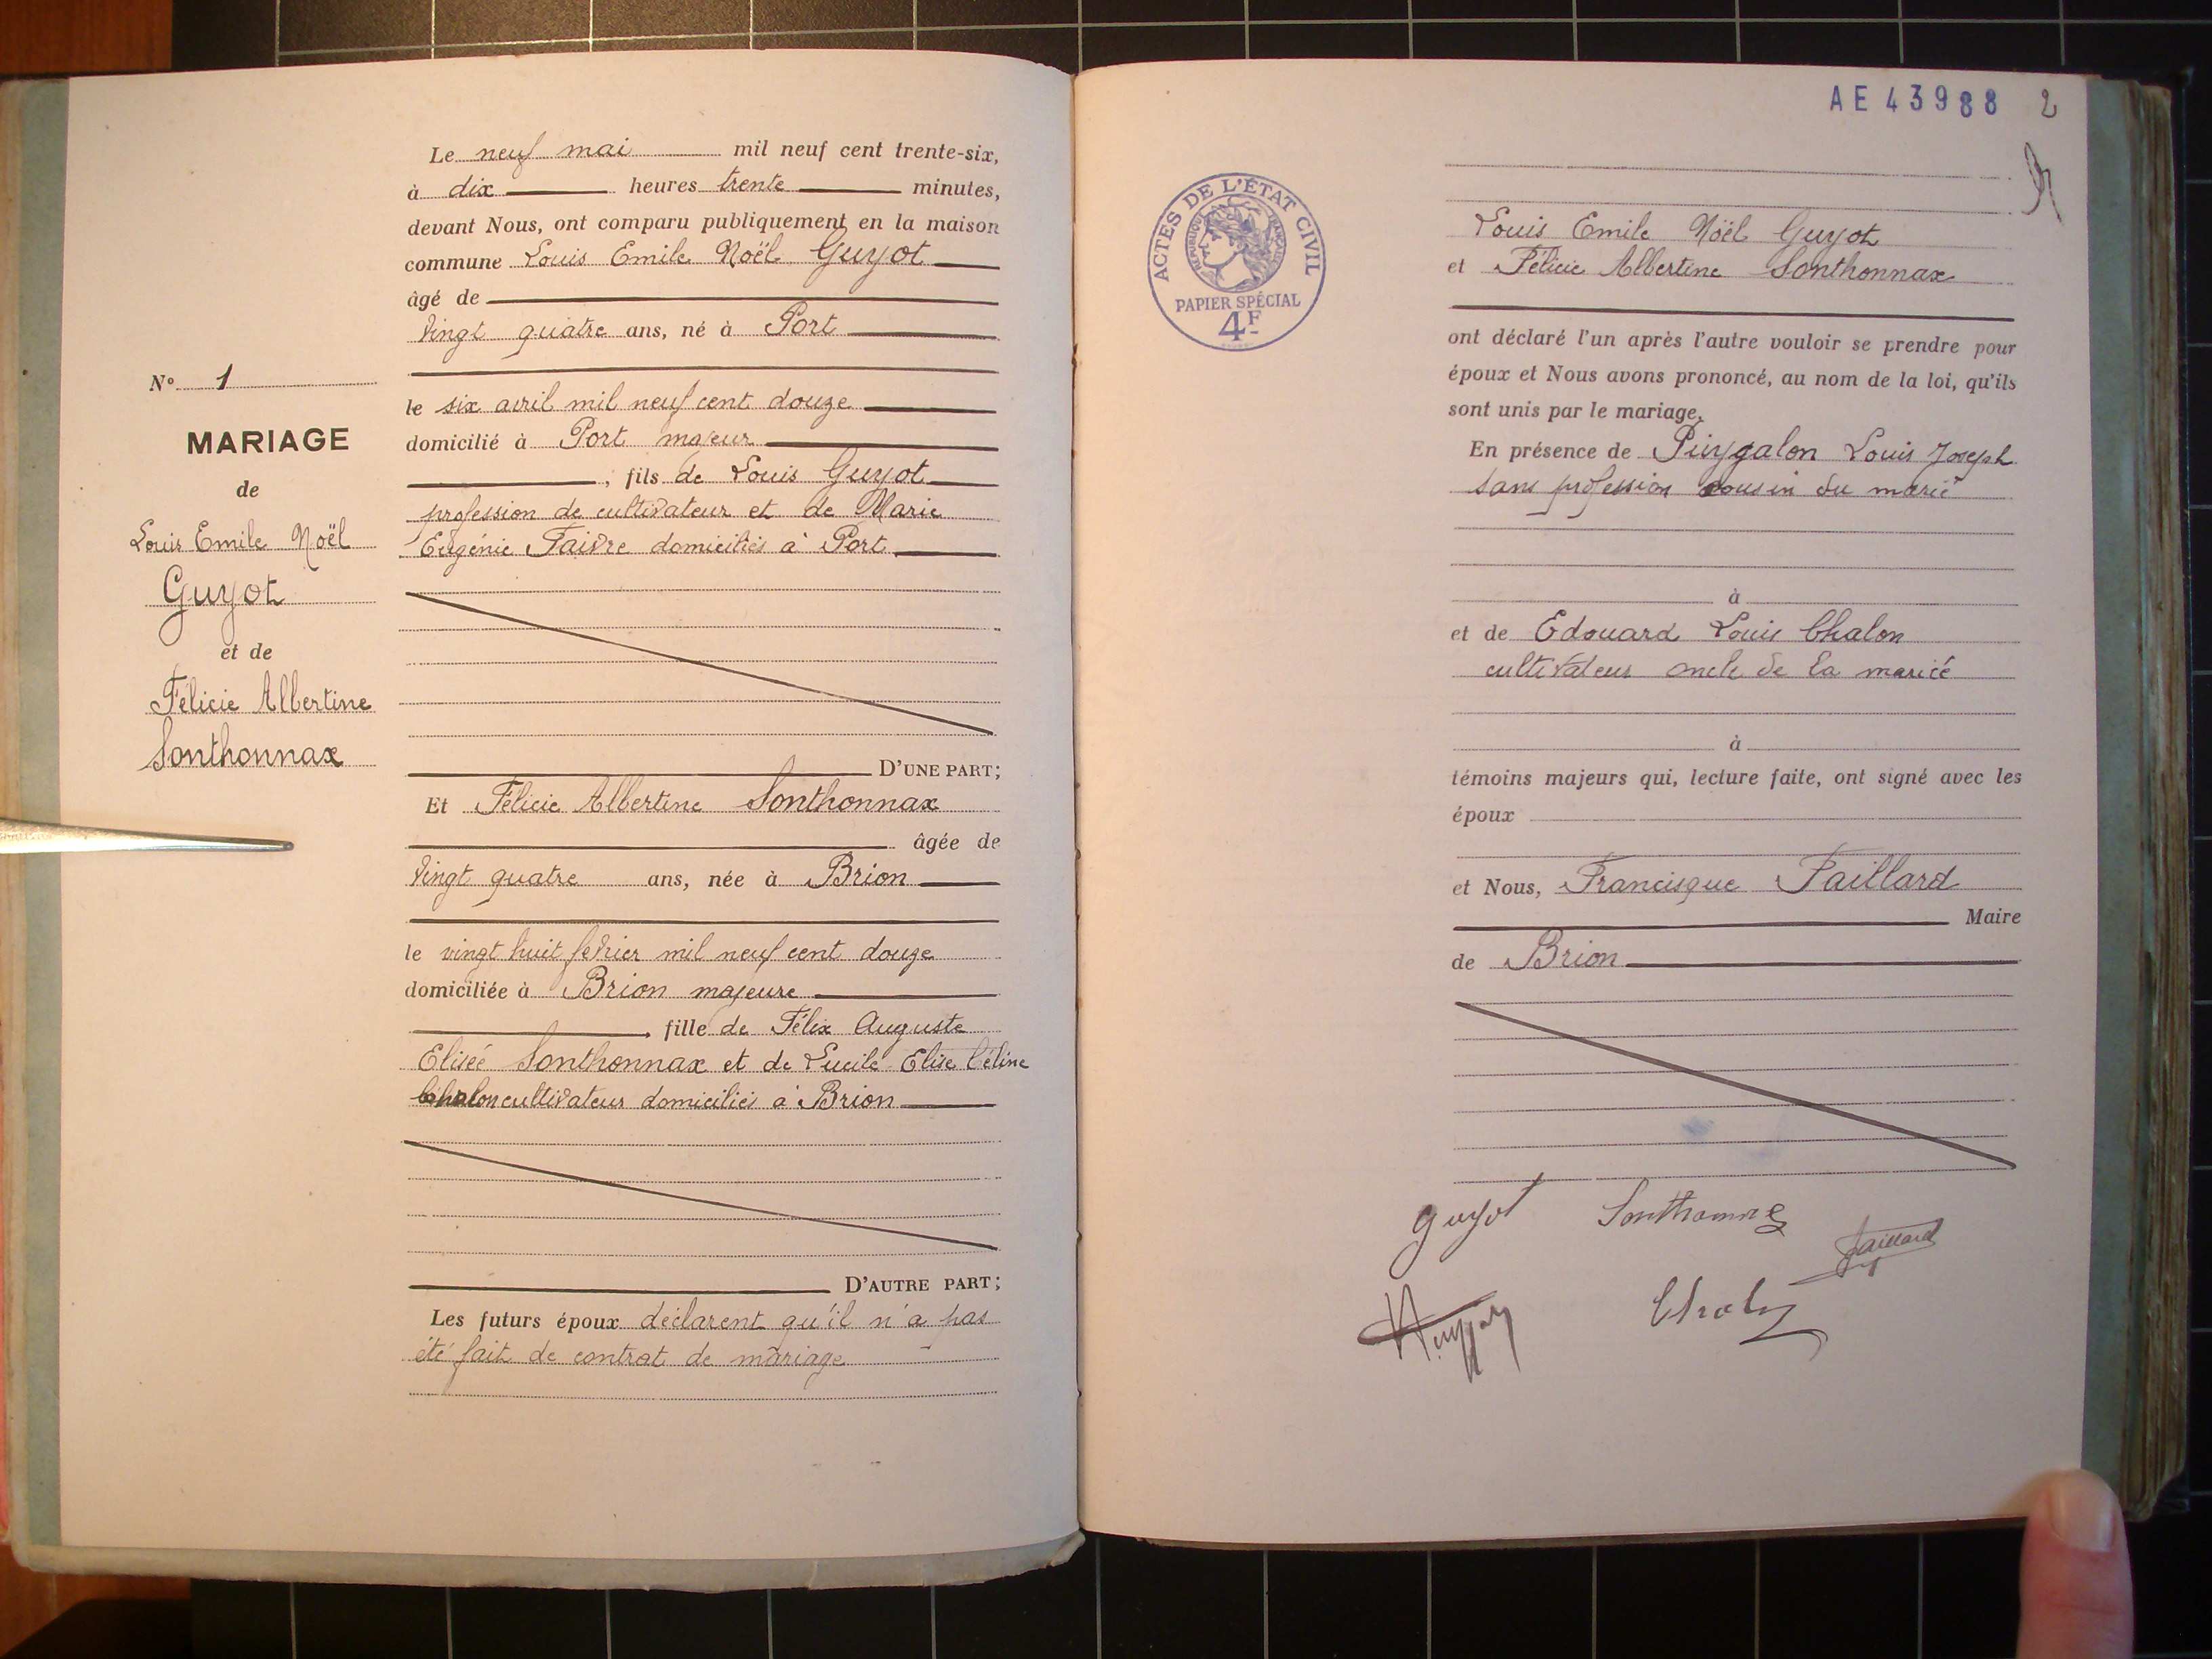 N° 1
MARIAGE
de
Louis Emile Noël
Guyot
et de
Félicie Albertine
Sonthonnax
Le neuf mai mil neuf cent trente-six,
à dix heures trente minutes,
devant Nous, ont comparu publiquement en la maison
commune Louis Emile Noël Guyot
âgé de
vingt quatre ans, né à Port
le six avril mil neuf cent douze
domicilié à Port majeur
; fils de Louis Guyot
profession de cultivateur et de Marie
Eugénie Faivre domiciliés à Port
D'UNE PART;
Et Félicie Albertine Sonthonnax
âgée de
vingt quatre ans, née à Brion
le vingt huit février mil neuf cent douze
domiciliée à Brion majeure
fille de Félix Auguste
Elisée Sonthonnax et de Lucile Elise Céline
Chalon cultivateur domiciliés à Brion
D'AUTRE PART;
Les futurs époux déclarent qu'il n'a pas
été fait de contrat de mariage
AE 43988 2
ACTES DE L'ÉTAT CIVIL
RÉPUBLIQUE FRANÇAISE
PAPIER SPÉCIAL
4F
Louis Emile Noël Guyot
et Félicie Albertine Sonthonnax
ont déclaré l'un après l'autre vouloir se prendre pour
époux et Nous avons prononcé, au nom de la loi, qu'ils
sont unis par le mariage,
En présence de Puygalon Louis Joseph
sans profession cousin du marié
à
et de Edouard Louis Chalon
cultivateur oncle de la mariée
à
témoins majeurs qui, lecture faite, ont signé avec les
époux
et Nous, Francisque Paillard
Maire
de Brion
Guyot Sonthonnax
Paillard
Chalon